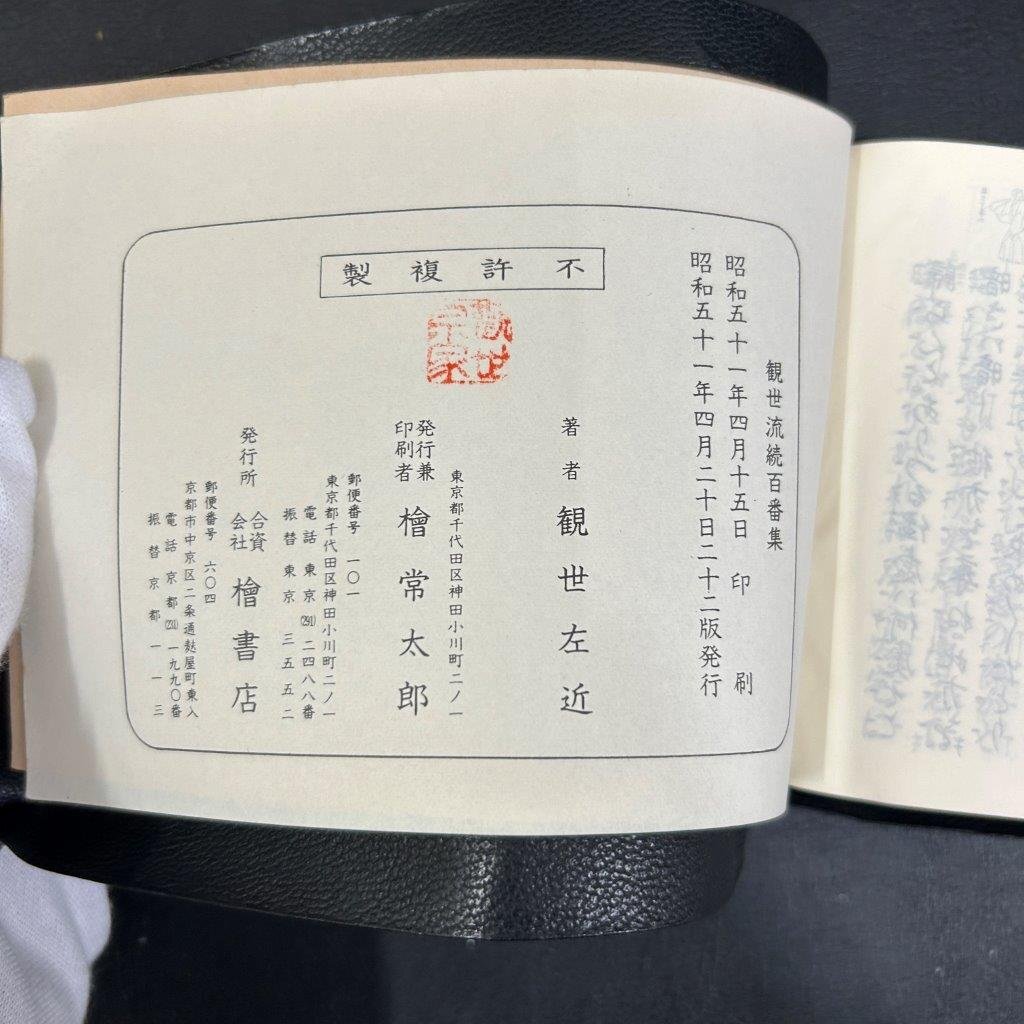 観世流続百番集
昭和五十一年四月十五日 印刷
昭和五十一年四月二十日二十二版発行
不許複製
観世宗家
著者 観世左近
東京都千代田区神田小川町二ノ一
発行兼印刷者 檜常太郎
郵便番号 一〇一
東京都千代田区神田小川町二ノ一
電話 東京(291)二四八八番
振替 東京 三五五二
発行所 合資会社 檜書店
郵便番号 六〇四
京都市中京区二条通麩屋町東入
電話 京都(231)一九九〇番
振替 京都 一一三